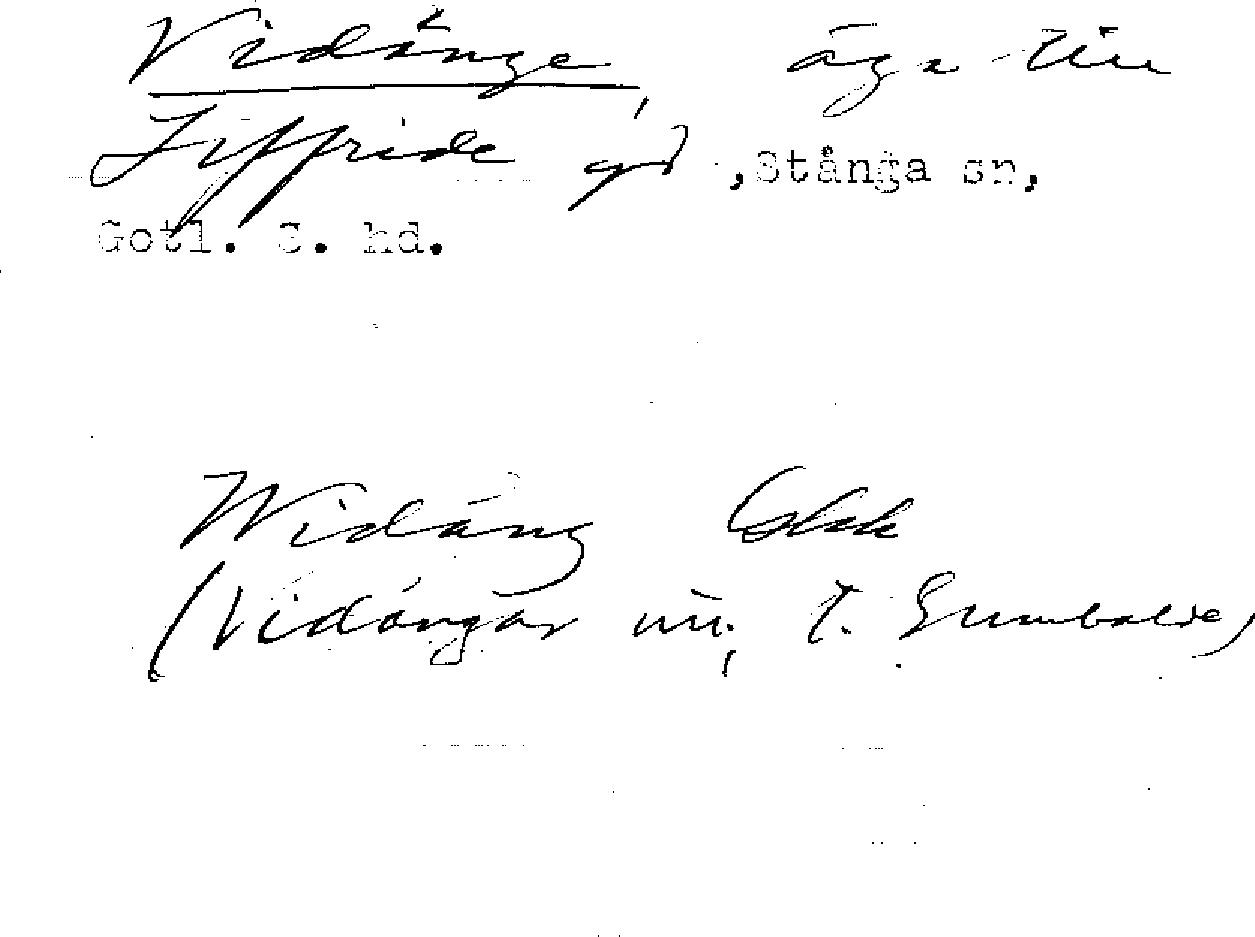 Vidänge, äga till
Liffride gd, Stånga sn,
Gotl. S. hd.
Widäng Gbkk
(Vidängar nu; t. Gumbalde)